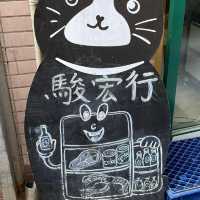 駿宏行